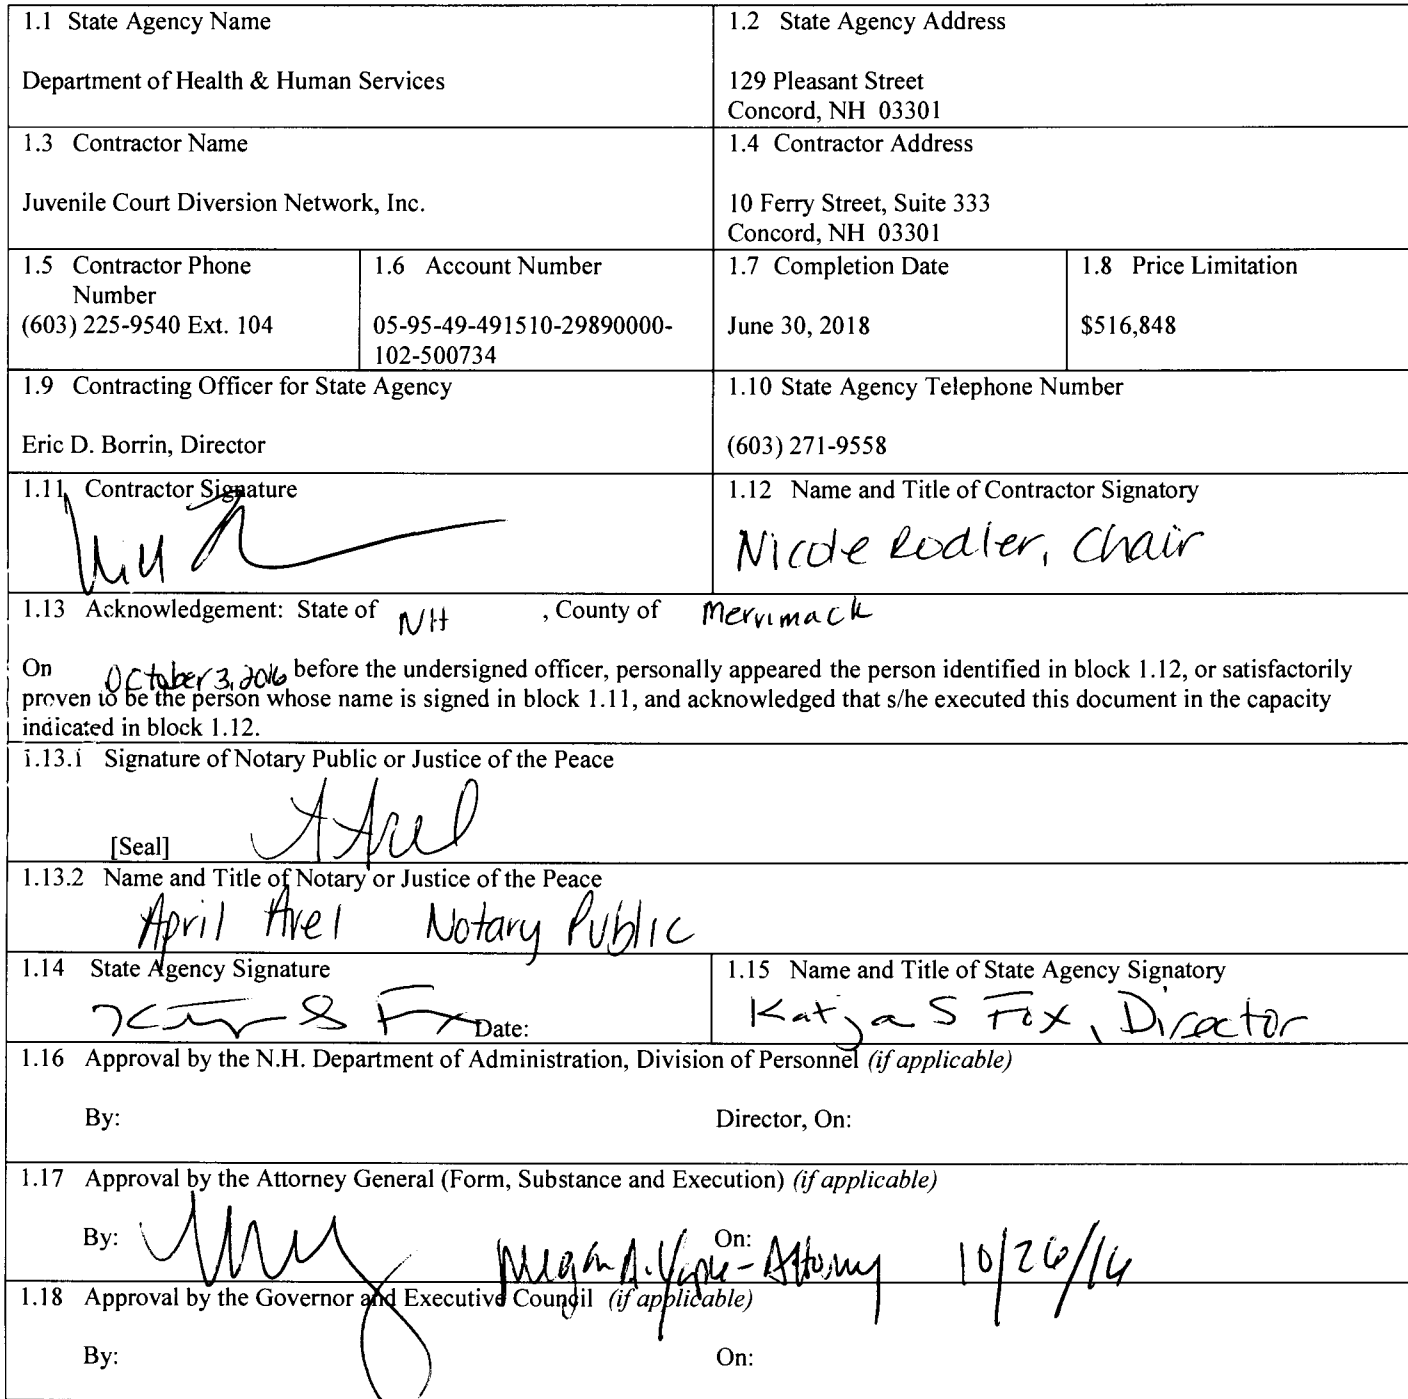 1.1 State Agency Name
Department of Health & Human Services
1.2 State Agency Address
129 Pleasant Street
Concord, NH 03301
1.3 Contractor Name
Juvenile Court Diversion Network, Inc.
1.4 Contractor Address
10 Ferry Street, Suite 333
Concord, NH 03301
1.5 Contractor Phone
Number
(603) 225-9540 Ext. 104
1.6 Account Number
05-95-49-491510-29890000-
102-500734
1.7 Completion Date
June 30, 2018
1.8 Price Limitation
$516,848
1.9 Contracting Officer for State Agency
Eric D. Borrin, Director
1.10 State Agency Telephone Number
(603) 271-9558
1.11 Contractor Signature
1.12 Name and Title of Contractor Signatory
Nicole Rodler, Chair
1.13 Acknowledgement: State of NH , County of Merrimack
On October 3, 2016 before the undersigned officer, personally appeared the person identified in block 1.12, or satisfactorily
proven to be the person whose name is signed in block 1.11, and acknowledged that s/he executed this document in the capacity
indicated in block 1.12.
1.13.1 Signature of Notary Public or Justice of the Peace
[Seal]
1.13.2 Name and Title of Notary or Justice of the Peace
April Notary Public
1.14 State Agency Signature
Date:
1.15 Name and Title of State Agency Signatory
Katja S Fox, Director
1.16 Approval by the N.H. Department of Administration, Division of Personnel (if applicable)
By: Director, On:
1.17 Approval by the Attorney General (Form, Substance and Execution) (if applicable)
By: Megan A. - Attorney On: 10/26/16
1.18 Approval by the Governor and Executive Council (if applicable)
By: On: